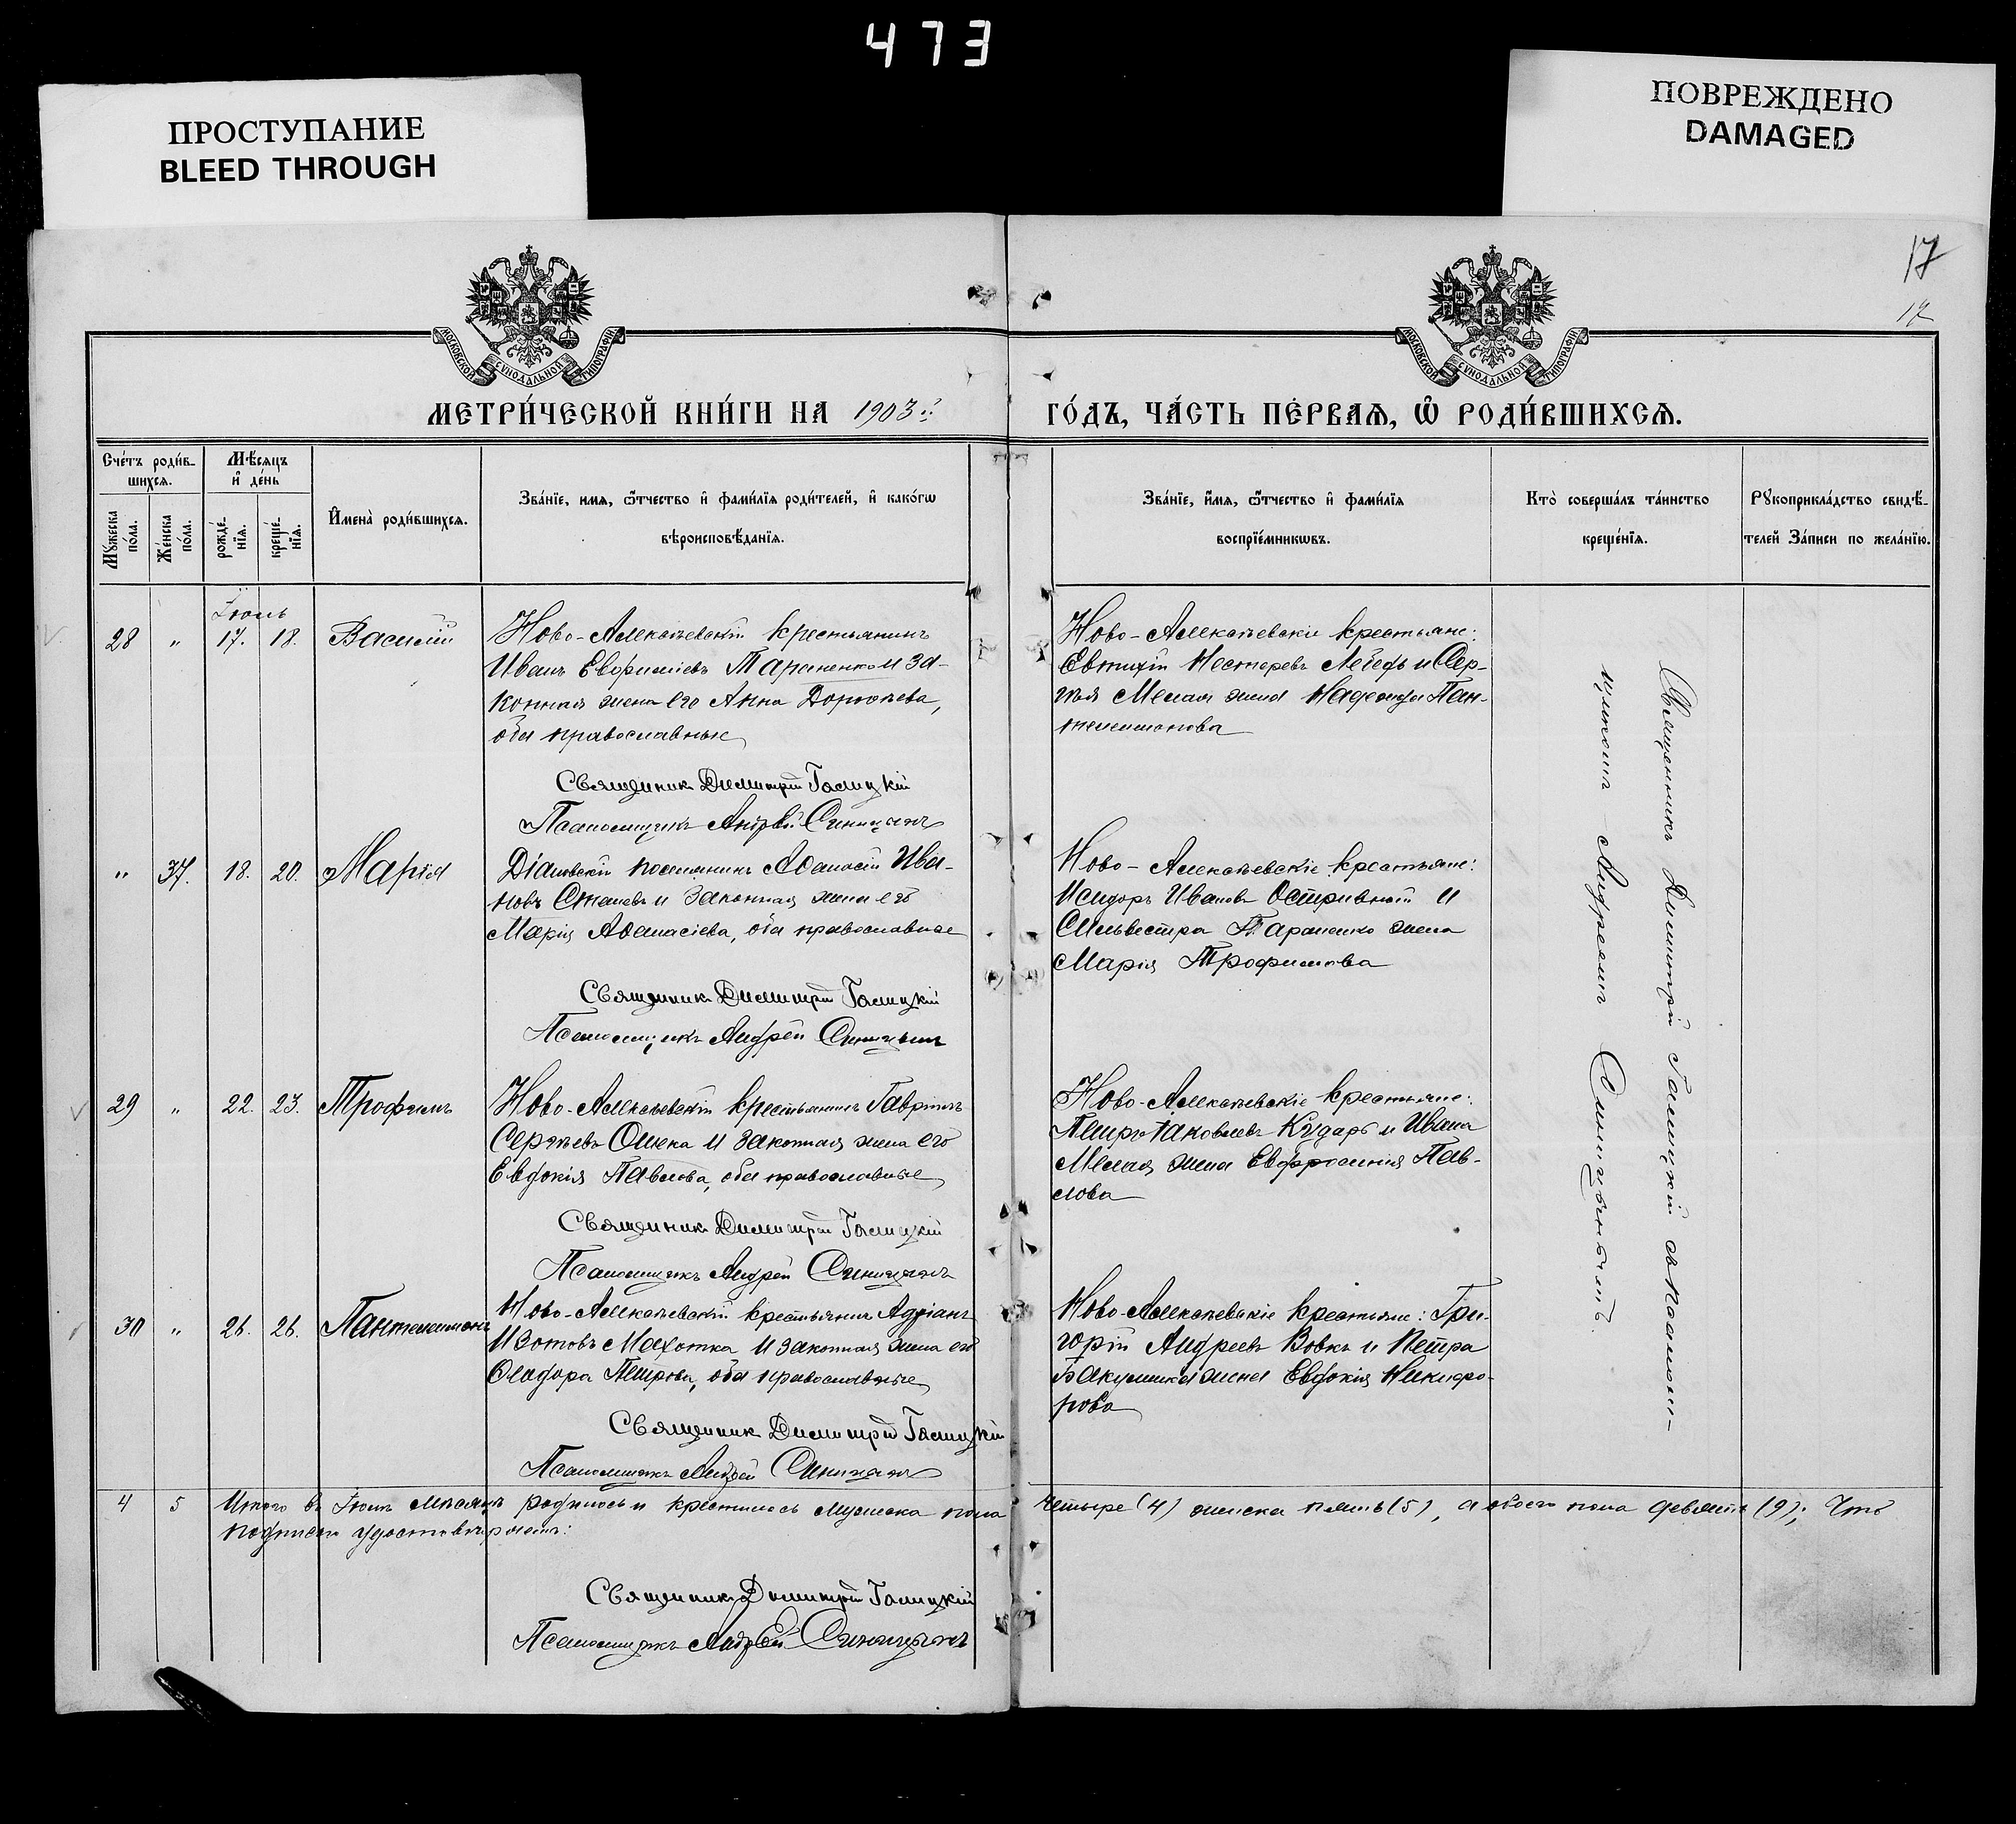 473
ПРОСТУПАНИЕ
BLEED THROUGH
ПОВРЕЖДЕНО
DAMAGED
17
17
МОСКОВСКОЙ СУНОДАЛЬНОЙ ТИПОГРАФІИ
МОСКОВСКОЙ СУНОДАЛЬНОЙ ТИПОГРАФІИ
МЕТРИ́ЧЕСКОЙ КНИ́ГИ НА 1903й
ГО́ДЪ, ЧА́СТЬ ПЕ́РВАѦ, Ѽ РОДИ́ВШИХСѦ.
Сче́тъ роди́в-
шихсѧ.
Мѣ́сѧцъ
и҆ де́нь
Мꙋ́жеска
по́ла.
Же́нска
по́ла.
рожде́-
нїѧ.
креще́-
нїѧ.
И҆мена̀ роди́вшихсѧ.
Зва́нїе, имѧ, ѻ҆́тчество и҆ фами́лїѧ роди́телей, и҆ како́гѡ
вѣроисповѣ́данїѧ.
Зва́нїе, и҆́мѧ, ѻ҆́тчество и҆ фами́лїѧ
воспрїе́мникѡвъ.
Кто̀ соверша́лъ та́инство
креще́нїѧ.
Рꙋкоприкла́дство свидѣ́-
телей За́писи по жела́нїю.
Іюль
28 " 17. 18. Василій
Ново-Алексѣевскій крестьянинъ
Иванъ Евфиміевъ Тараненко и за-
конная жена его Анна Дороѳѣева,
оба православные
Священникъ Димитрій Галицкій
Псаломщикъ Андрей Синицынъ
Ново-Алексѣевскіе крестьяне:
Евтихій Несторевъ Лебедь и Сер-
гѣя Мелая жена Надежда Пан-
телеимонова
" 37. 18. 20. Марія
поселянинъ Аѳанасій Ива-
новъ и законная жена его
Марія Аѳанасіева, оба православные
Священникъ Димитрій Галицкій
Псаломщикъ Андрей Синицынъ
Ново-Алексѣевскіе крестьяне:
Исидоръ Ивановъ Остривный и
Сильвестра Тараненко жена
Марія Трофимова
29 " 22. 23. Трофимъ
Ново-Алексѣевскій крестьянинъ Гавріилъ
Сергѣевъ и законная жена его
Евдокія Павлова, оба православные
Священникъ Димитрій Галицкій
Псаломщикъ Андрей Синицынъ
Ново-Алексѣевскіе крестьяне:
Петръ Іаковлевъ Кударь и Ивана
Мелая жена Евфросинія Пав-
лова
30 " 26. 26. Пантелеимонъ
Ново-Алексѣевскій крестьянинъ Адріанъ
Изотовъ Махотка и законная жена его
Ѳеодора Петрова, оба православные
Священникъ Димитрій Галицкій
Псаломщикъ Андрей Синицынъ
Ново-Алексѣевскіе крестьяне: Гри-
горій Андреевъ Вовкъ и Петра
Бакуменка жена Евдокія Никифо-
рова
Священникъ Димитрій Галицкій съ псалом-
щикомъ Андреемъ Синицынымъ.
4 5 Итого въ Іюлѣ мѣсяцѣ родилось и крестилось мужеска пола четыре (4) женска пять (5), а обоего пола девять (9); Что
подписью удостовѣряемъ:
Священникъ Димитрій Галицкій
Псаломщикъ Андрей Синицынъ